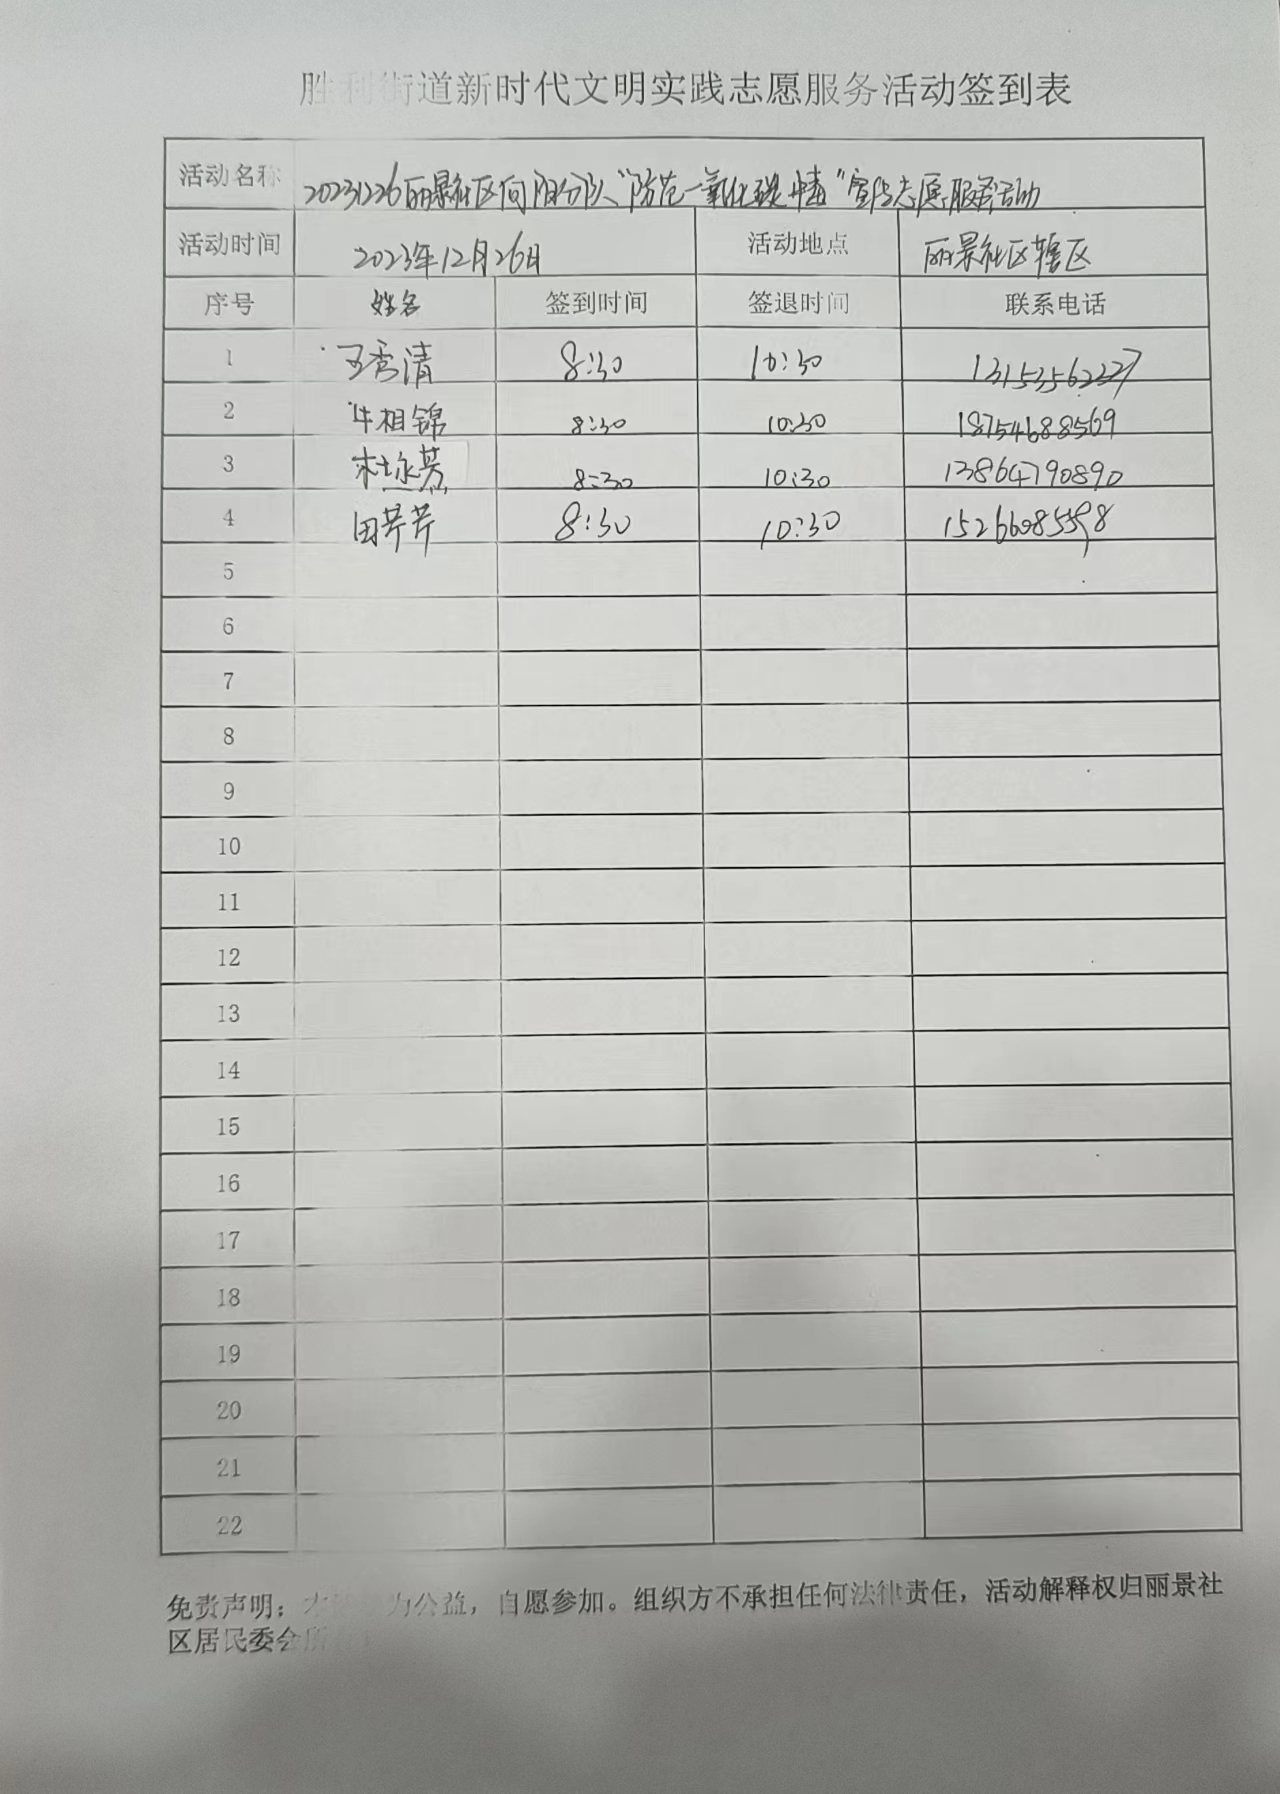 胜利街道新时代文明实践志愿服务活动签到表
活动名称 20231226丽景社区向阳分队“防范一氧化碳中毒”宣传志愿服务活动
活动时间 2023年12月26日 活动地点 丽景社区辖区
序号 姓名 签到时间 签退时间 联系电话
1 王秀清 8:30 10:30 13153562227
2 牛相锦 8:30 10:30 18754688569
3 杜永芳 8:30 10:30 13864790890
4 田芹芹 8:30 10:30 15266085598
5
6
7
8
9
10
11
12
13
14
15
16
17
18
19
20
21
22
免责声明：本 为公益，自愿参加。组织方不承担任何法律责任，活动解释权归丽景社
区居民委会所